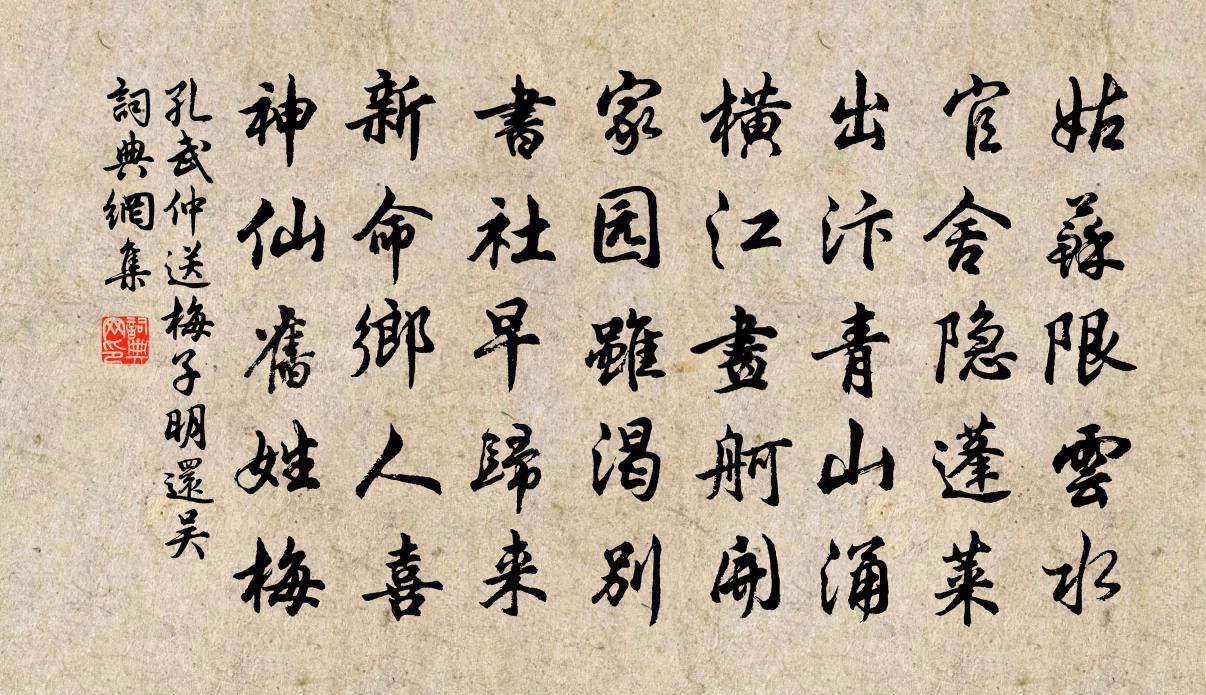 姑蘇限雲水
官舍隐蓬莱
出汴青山涌
橫江畫舸開
家园雖渴别
書社早歸来
新命鄉人喜
神仙舊姓梅
孔武仲送梅子明還吴
詞典網集
詞典網印